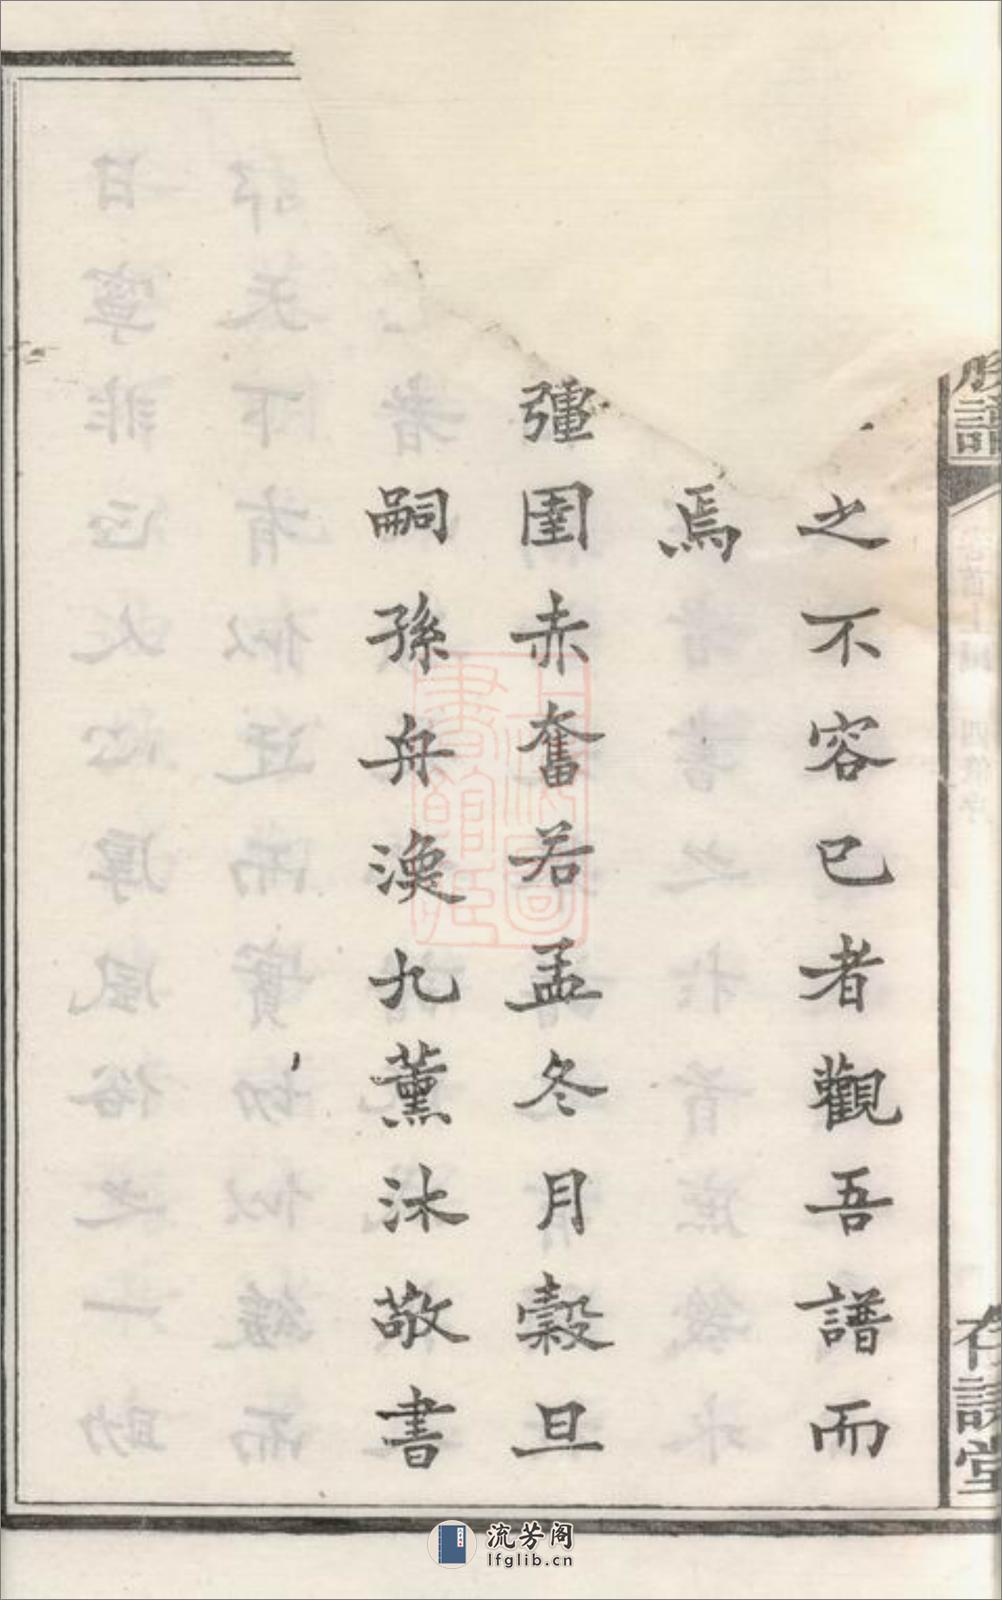 之不容已者觀吾譜而
焉
彊圉赤奮若孟冬月穀旦
嗣孫舟渙九薰沐敬書
族譜
存誠堂
上海圖書館藏
流芳阁
lfglib.cn